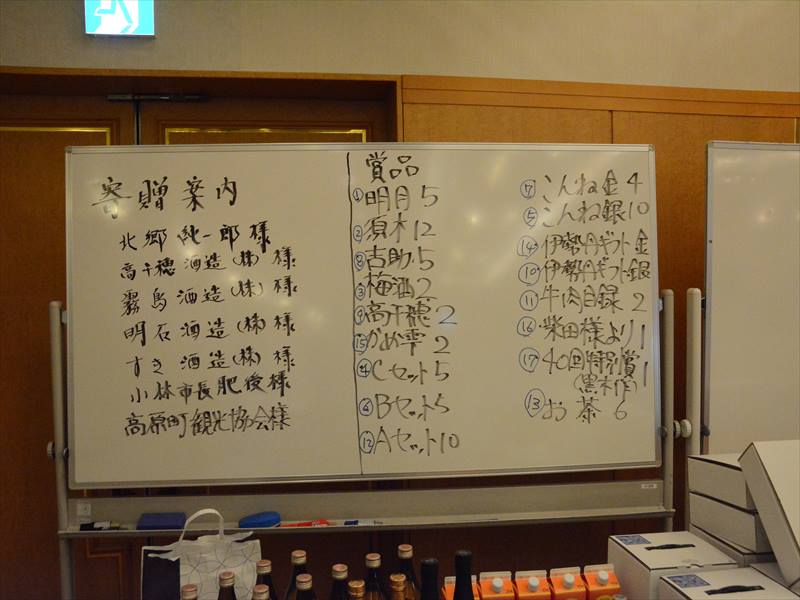 寄贈案内
北郷純一郎様
高千穂酒造(株)様
霧島酒造(株)様
明石酒造(株)様
すき酒造(株)様
小林市長肥後様
高原町観光協会様
賞品
①明月 5
②須木 12
⑧吉助 5
③梅酒 2
⑨高千穂 2
⑮かめ雫 2
④Cセット 5
⑥Bセット 5
⑫Aセット 10
⑦こんね金 4
⑤こんね銀 10
⑭伊勢丹ギフト金
⑩伊勢丹ギフト銀
⑪牛肉目録 2
⑯柴田様より 1
⑰40回特別賞 1
(黒木作)
⑬お茶 6